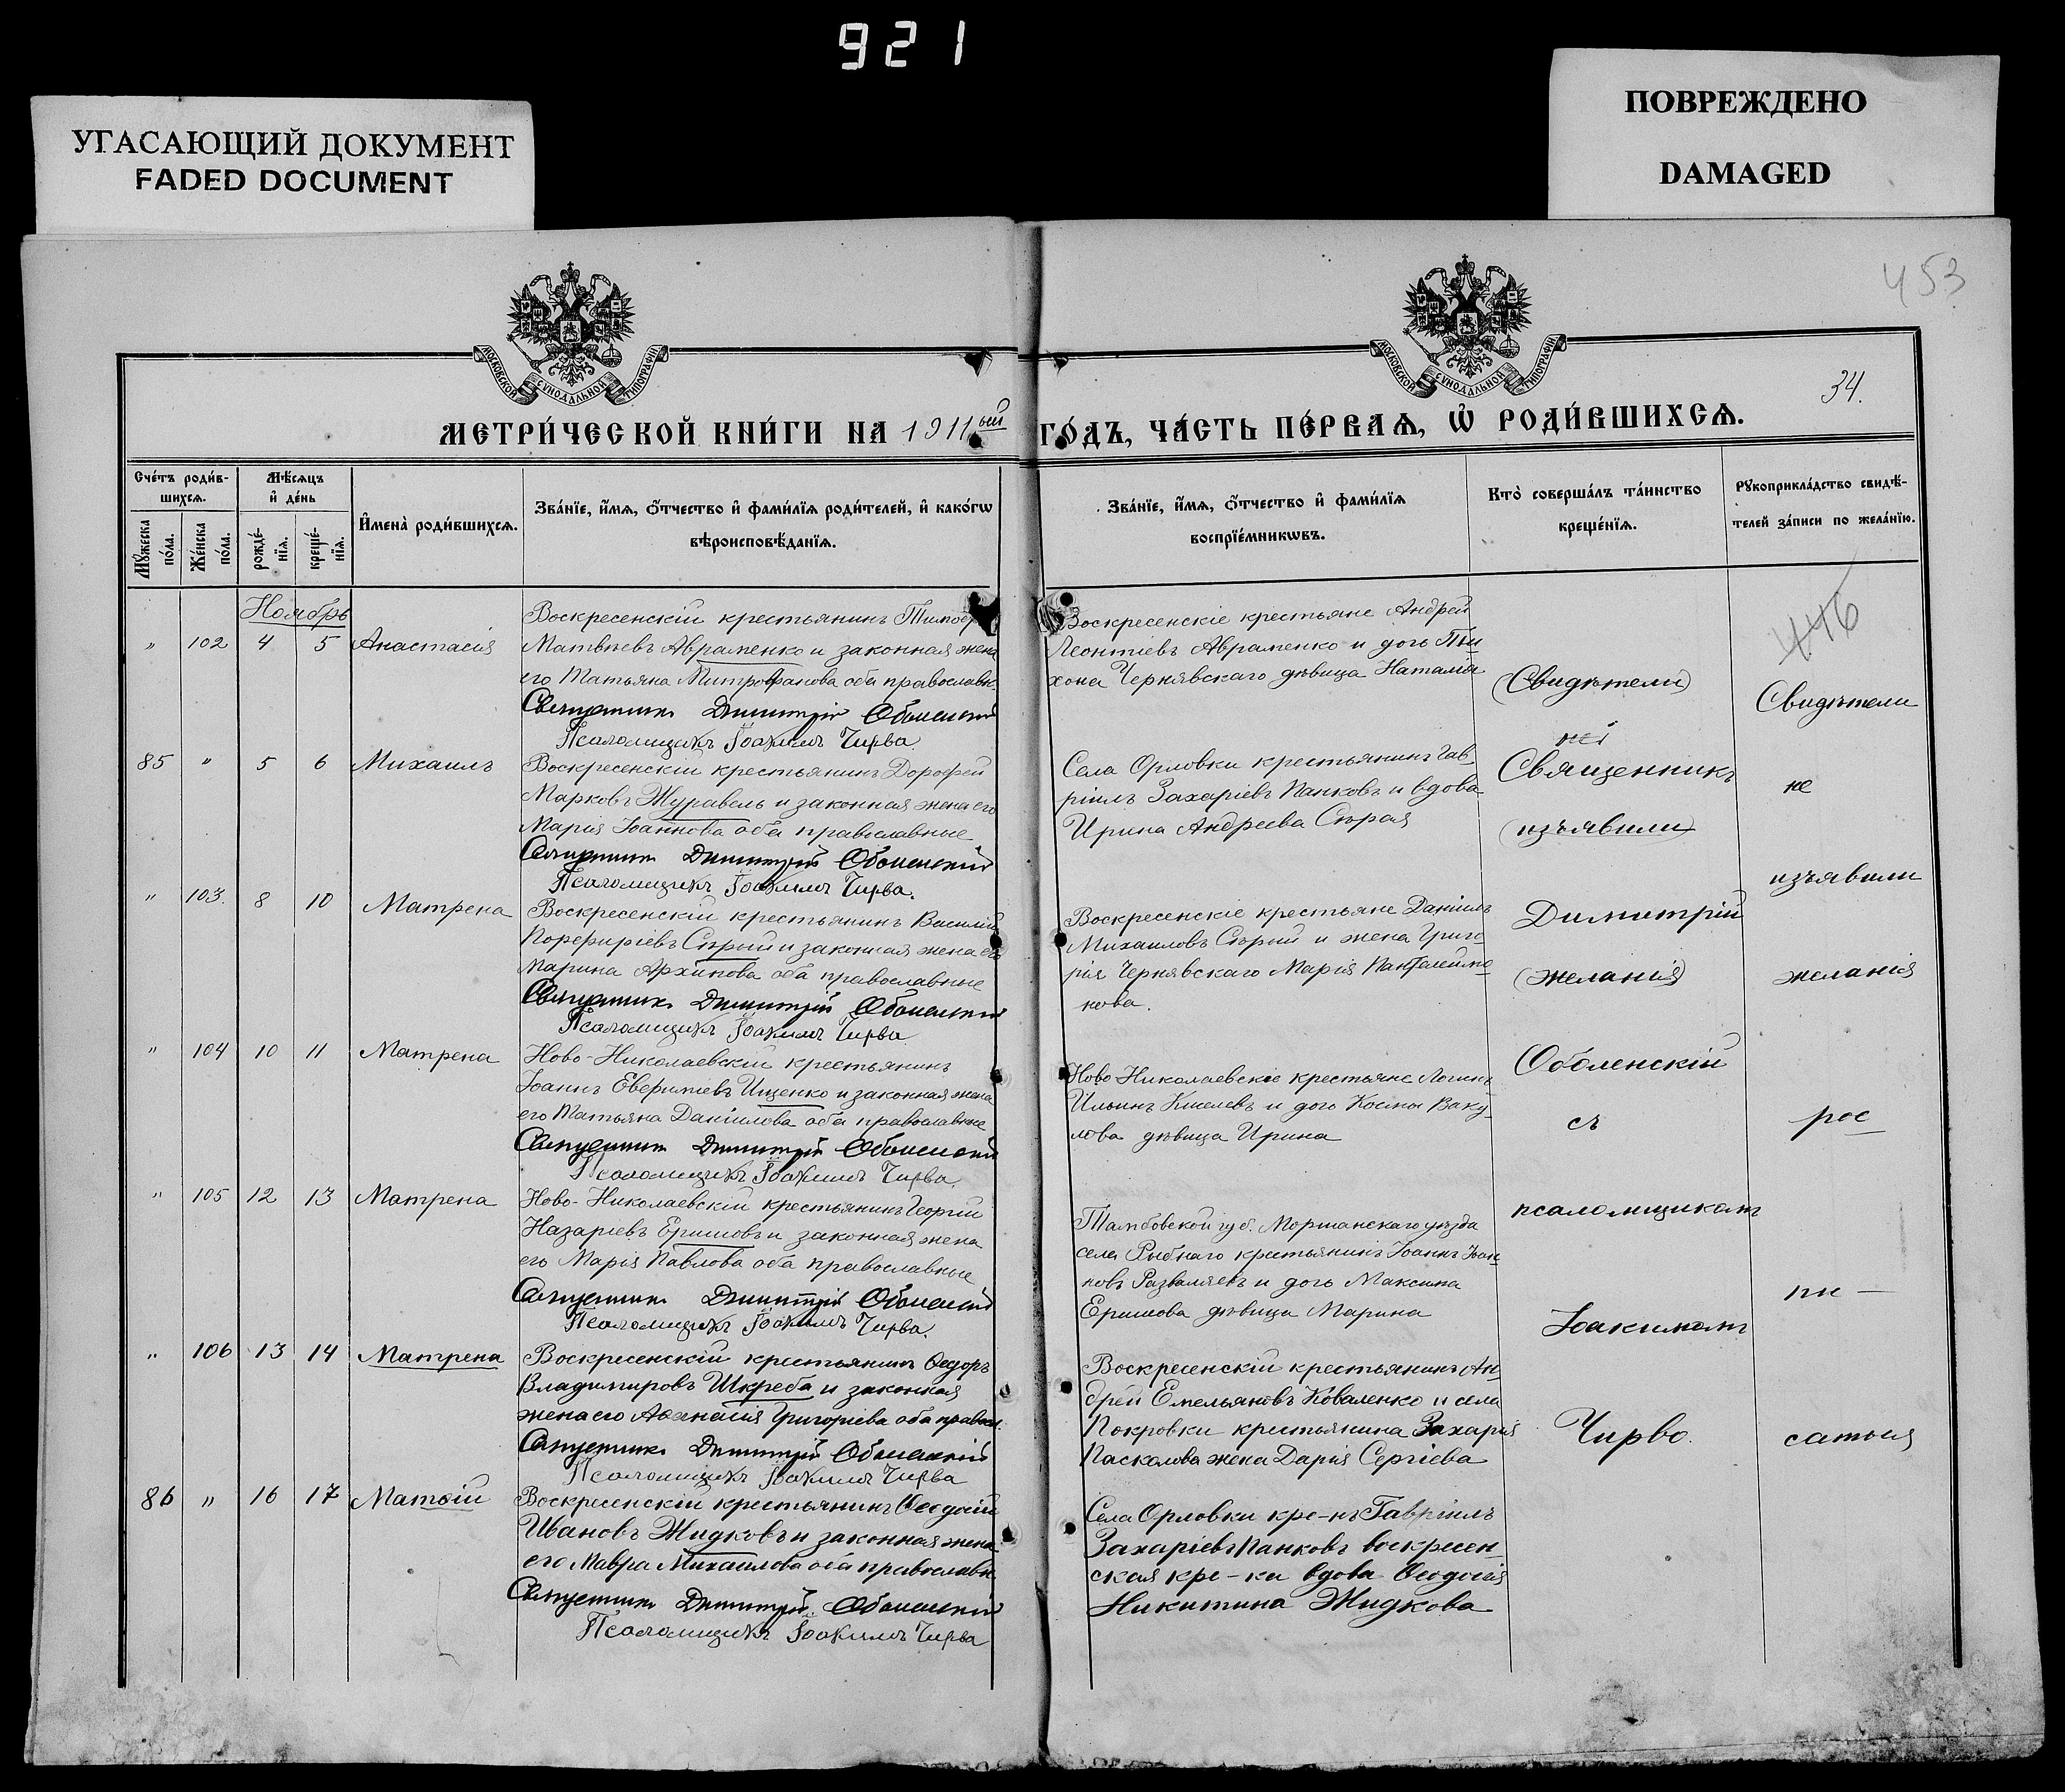 921
УГАСАЮЩИЙ ДОКУМЕНТ
FADED DOCUMENT
ПОВРЕЖДЕНО
DAMAGED
453
34.
МОСКОВСКОЙ СѴНОДАЛЬНОЙ ТИПОГРАФІИ
МОСКОВСКОЙ СѴНОДАЛЬНОЙ ТИПОГРАФІИ
МЕТРИ́ЧЕСКОЙ КНИ́ГИ НА 1911ый ГО́ДЪ, ЧА́СТЬ ПЕ́РВАѦ, Ѡ҆ РОДИ́ВШИХСѦ.
Сче́тъ роди́в-
шихсѧ.
Мꙋ́жеска по́ла.
Же́нска по́ла.
Мѣ́сѧцъ
и҆ де́нь
рожде́-нїѧ.
креще́-нїѧ.
И҆мена̀ роди́вшихсѧ.
Зва́нїе, и҆́мѧ, ѻ҆́тчество и҆ фами́лїѧ роди́телей, и҆ како́гѡ
вѣроисповѣ́данїѧ.
Зва́нїе, и҆́мѧ, ѻ҆́тчество и҆ фами́лїѧ
воспрїе́мникѡвъ.
Кто̀ соверша́лъ та́инство
креще́нїѧ.
Рꙋкоприкла́дство свидѣ́-
телей за́писи по жела́нїю.
Ноябрь
" 102 4 5 Анастасія
Воскресенскій крестьянинъ
Матвѣевъ Авраменко и законная жена
его Татьяна Митрофанова оба православн.
Священникъ Димитрій Оболенскій
Псаломщикъ Іоакимъ Чирва
Воскресенскіе крестьяне Андрей
Леонтіевъ Авраменко и дочь Ти-
хона Чернявскаго дѣвица Наталія
85 " 5 6 Михаилъ
Воскресенскій крестьянинъ Дорофей
Марковъ Журавель и законная жена его
Марія Іоаннова оба православные
Священникъ Димитрій Оболенскій
Псаломщикъ Іоакимъ Чирва.
Села Орловки крестьянинъ Гав-
ріилъ Захаріевъ Панковъ и вдова
Ирина Андреева Сѣрая
" 103. 8 10 Матрена
Воскресенскій крестьянинъ Василій
Порфиріевъ Сѣрый и законная жена его
Марина Архипова оба православные
Священникъ Димитрій Оболенскій
Псаломщикъ Іоакимъ Чирва
Воскресенскіе крестьяне Даніилъ
Михаиловъ Сѣрый и жена Григо-
рія Чернявскаго Марія Пантелеймо-
нова.
" 104 10 11 Матрена
Ново-Николаевскій крестьянинъ
Іоаннъ Евфиміевъ Ищенко и законная жена
его Татьяна Даніилова оба православные
Священникъ Димитрій Оболенскій
Псаломщикъ Іоакимъ Чирва.
Ново Николаевскіе крестьяне Логинъ
Ильинъ Киселевъ и дочь Космы Ваку-
лова дѣвица Ирина
" 105 12 13 Матрена
Ново-Николаевскій крестьянинъ Георгій
Назаріевъ Ершовъ и законная жена
его Марія Павлова оба православные
Священникъ Димитрій Оболенскій
Псаломщикъ Іоакимъ Чирва.
Тамбовской губ. Моршанскаго уѣзда
села Рыбнаго крестьянинъ Іоаннъ Іоан-
новъ Разваляевъ и дочь Максима
Ершова дѣвица Марина
" 106 13 14 Матрена
Воскресенскій крестьянинъ Ѳедоръ
Владимировъ Шкреба и законная
жена его Аѳанасія Григоріева оба правосл.
Священникъ Димитрій Оболенскій
Псаломщикъ Іоакимъ Чирва
Воскресенскій крестьянинъ Ан-
дрей Емельяновъ Коваленко и села
Покровки крестьянина Захарія
Пасколова жена Дарія Сергіева
86 " 16 17 Матѳій
Воскресенскій крестьянинъ Ѳеодосій
Ивановъ Жидковъ и законная жена
его Мавра Михаилова оба православн
Священникъ Димитрій Оболенскій
Псаломщикъ Іоакимъ Чирва
Села Орловки кре-нъ Гавріилъ
Захаріевъ Панковъ воскресен-
ская кре-ка вдова Ѳеодосія
Никитина Жидкова
(Свидѣтели)
Священникъ
(изъявили)
Димитрій
(желанія)
Оболенскій
съ
псаломщикомъ
Іоакимомъ
Чирво.
Свидѣтели
не
изъявили
желанія
рос
пи –
саться